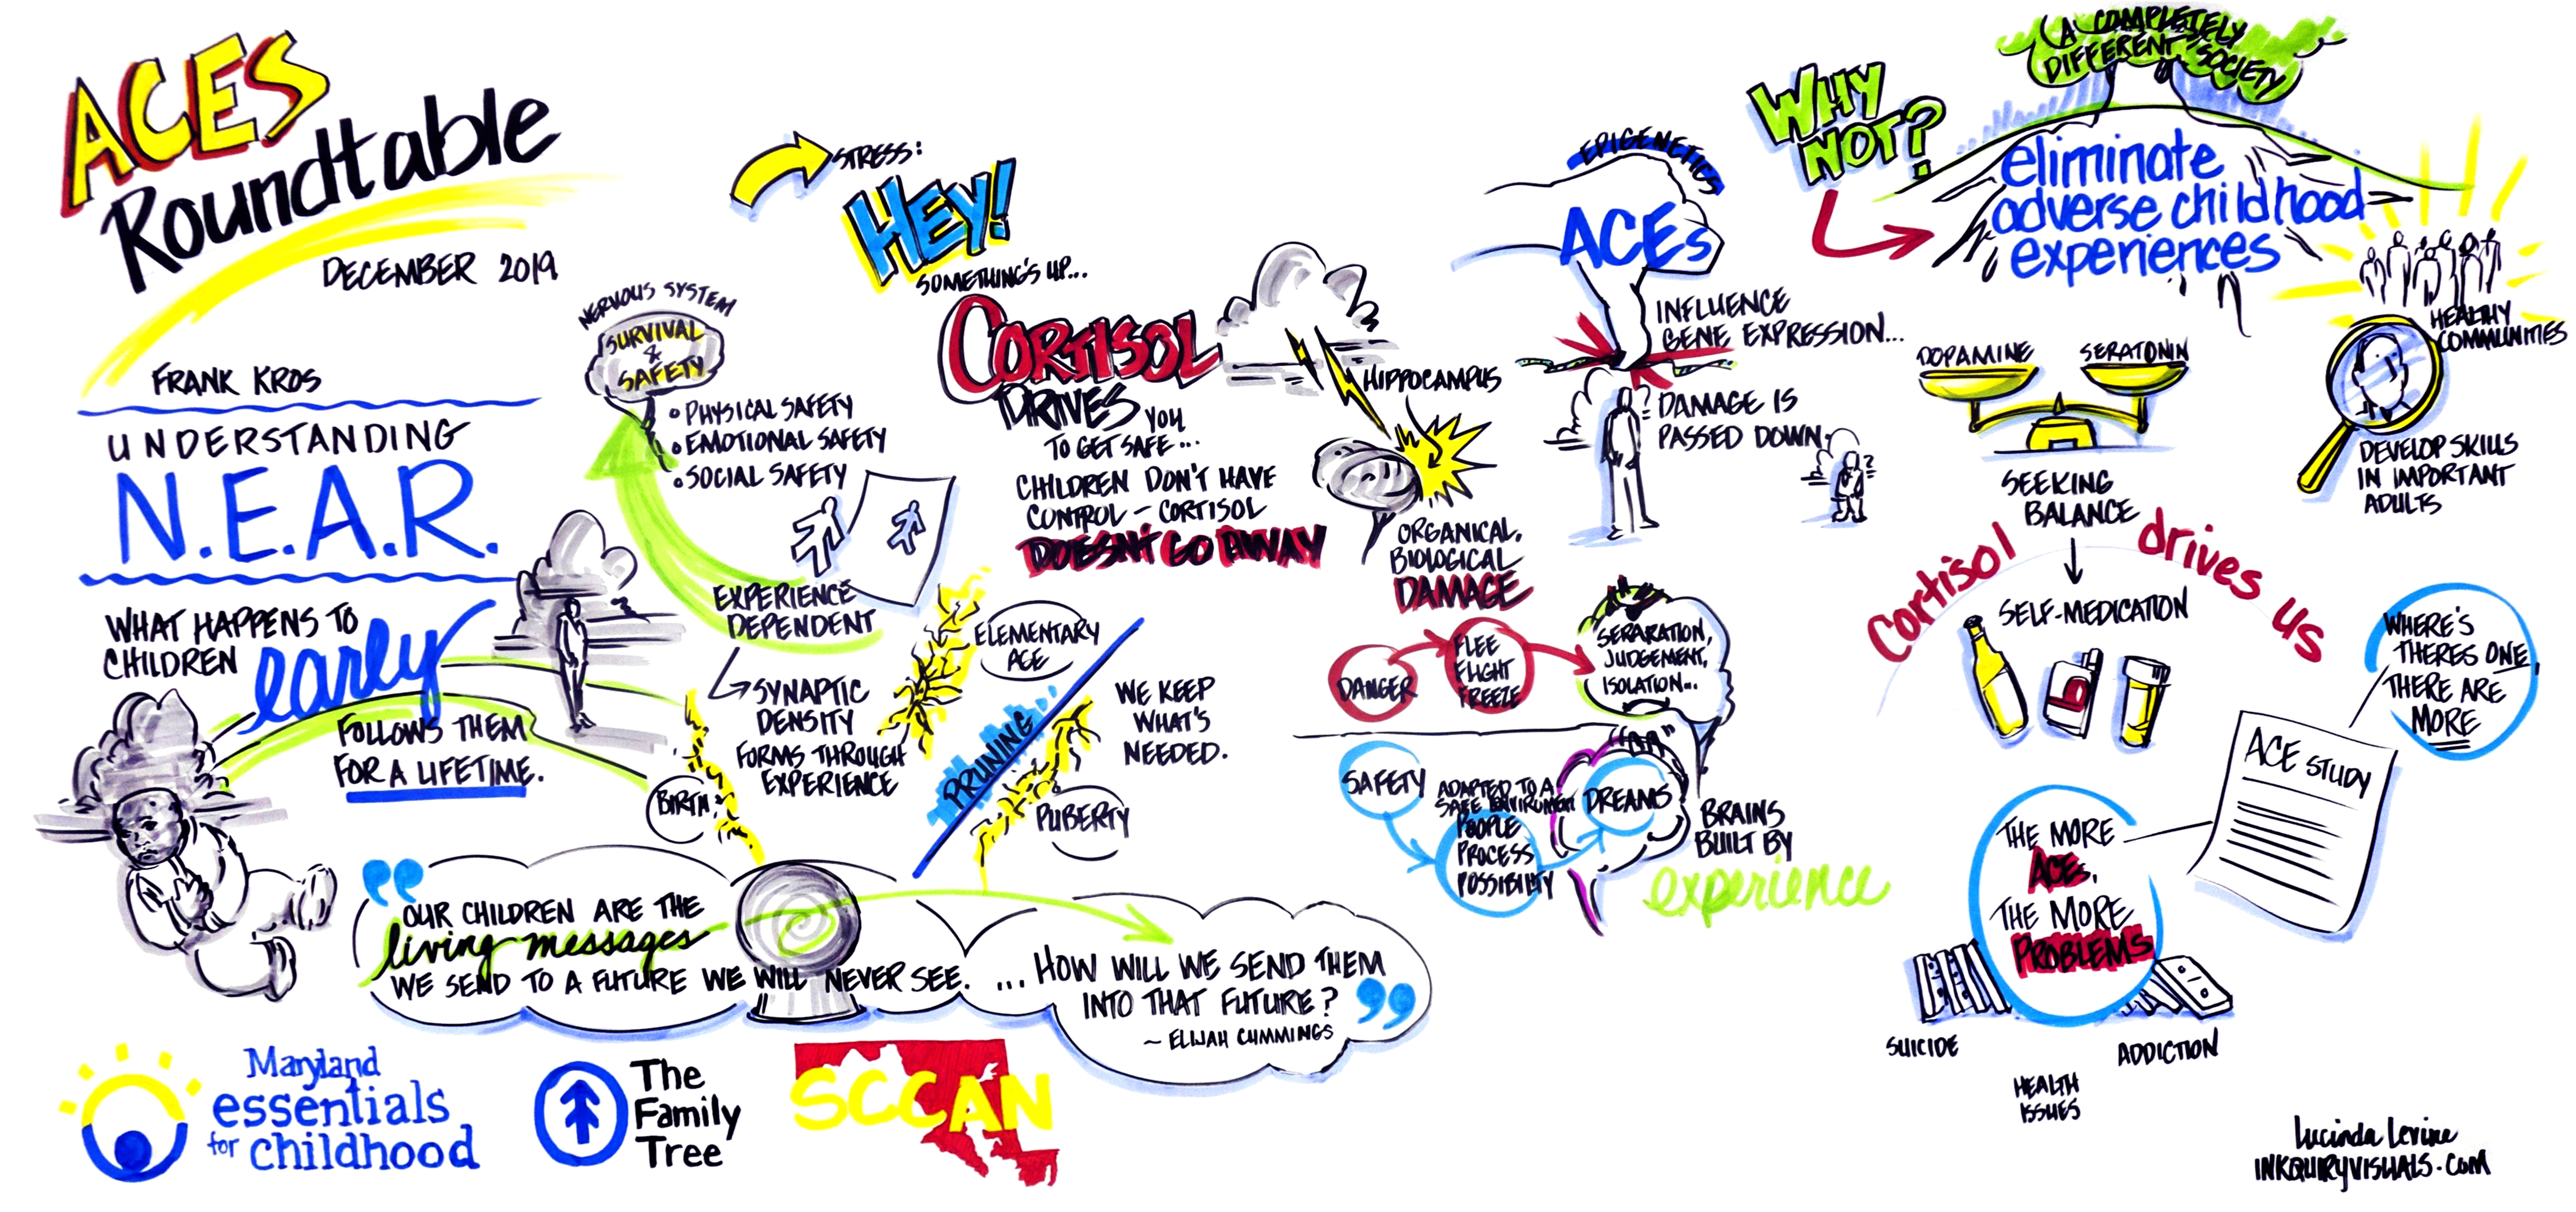 ACES
Roundtable
DECEMBER 2019
FRANK KROS
UNDERSTANDING
N.E.A.R.
WHAT HAPPENS TO
CHILDREN early
FOLLOWS THEM
FOR A LIFETIME.
STRESS:
HEY!
SOMETHING'S UP...
NERVOUS SYSTEM
SURVIVAL
&
SAFETY
• PHYSICAL SAFETY
• EMOTIONAL SAFETY
• SOCIAL SAFETY
EXPERIENCE
DEPENDENT
SYNAPTIC
DENSITY
FORMS THROUGH
EXPERIENCE
BIRTH
ELEMENTARY
AGE
PRUNING
PUBERTY
WE KEEP
WHAT'S
NEEDED.
CORTISOL
DRIVES YOU
TO GET SAFE...
CHILDREN DON'T HAVE
CONTROL - CORTISOL
DOESN'T GO AWAY
HIPPOCAMPUS
ORGANICAL,
BIOLOGICAL
DAMAGE
DANGER
FLEE
FLIGHT
FREEZE
SEPARATION,
JUDGEMENT,
ISOLATION...
"OR"
SAFETY
ADAPTED TO A
SAFE ENVIRONMENT
PEOPLE
PROCESS
POSSIBILITY
DREAMS
BRAINS
BUILT BY
experience
EPIGENETICS
ACEs
INFLUENCE
GENE EXPRESSION...
DAMAGE IS
PASSED DOWN.
WHY
NOT?
A COMPLETELY
DIFFERENT SOCIETY
eliminate
adverse childhood
experiences
HEALTHY
COMMUNITIES
DEVELOP SKILLS
IN IMPORTANT
ADULTS
DOPAMINE
SERATONIN
SEEKING
BALANCE
Cortisol drives us
SELF-MEDICATION
WHERE'S
THERES ONE,
THERE ARE
MORE
ACE STUDY
THE MORE
ACEs,
THE MORE
PROBLEMS
SUICIDE
HEALTH
ISSUES
ADDICTION
"OUR CHILDREN ARE THE
living messages
WE SEND TO A FUTURE WE WILL NEVER SEE.
...HOW WILL WE SEND THEM
INTO THAT FUTURE?"
~ ELIJAH CUMMINGS
Maryland
essentials
for childhood
The
Family
Tree
SCCAN
Lucinda Levine
INKQUIRYVISUALS.COM